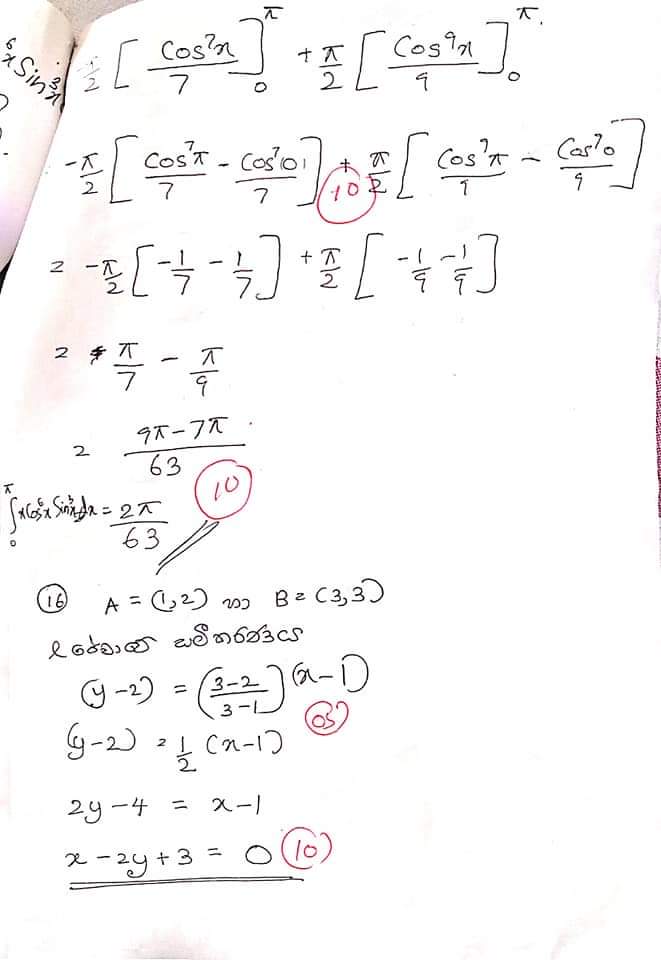 x Sin³x
-π/2 [ Cos⁷x / 7 ]₀^π + π/2 [ Cos⁹x / 9 ]₀^π
-π/2 [ Cos⁷π / 7 - Cos⁷0 / 7 ] + π/2 [ Cos⁹π / 9 - Cos⁹0 / 9 ]
10
= -π/2 [ -1/7 - 1/7 ] + π/2 [ -1/9 - 1/9 ]
= π/7 - π/9
= 9π-7π / 63
10
∫₀^π x Cos⁶x Sin³x dx = 2π / 63
16 A = (1,2) හා B = (3,3)
(y-2) = (3-2 / 3-1) (x-1)
05
(y-2) = 1/2 (x-1)
2y-4 = x-1
x-2y+3 = 0 10